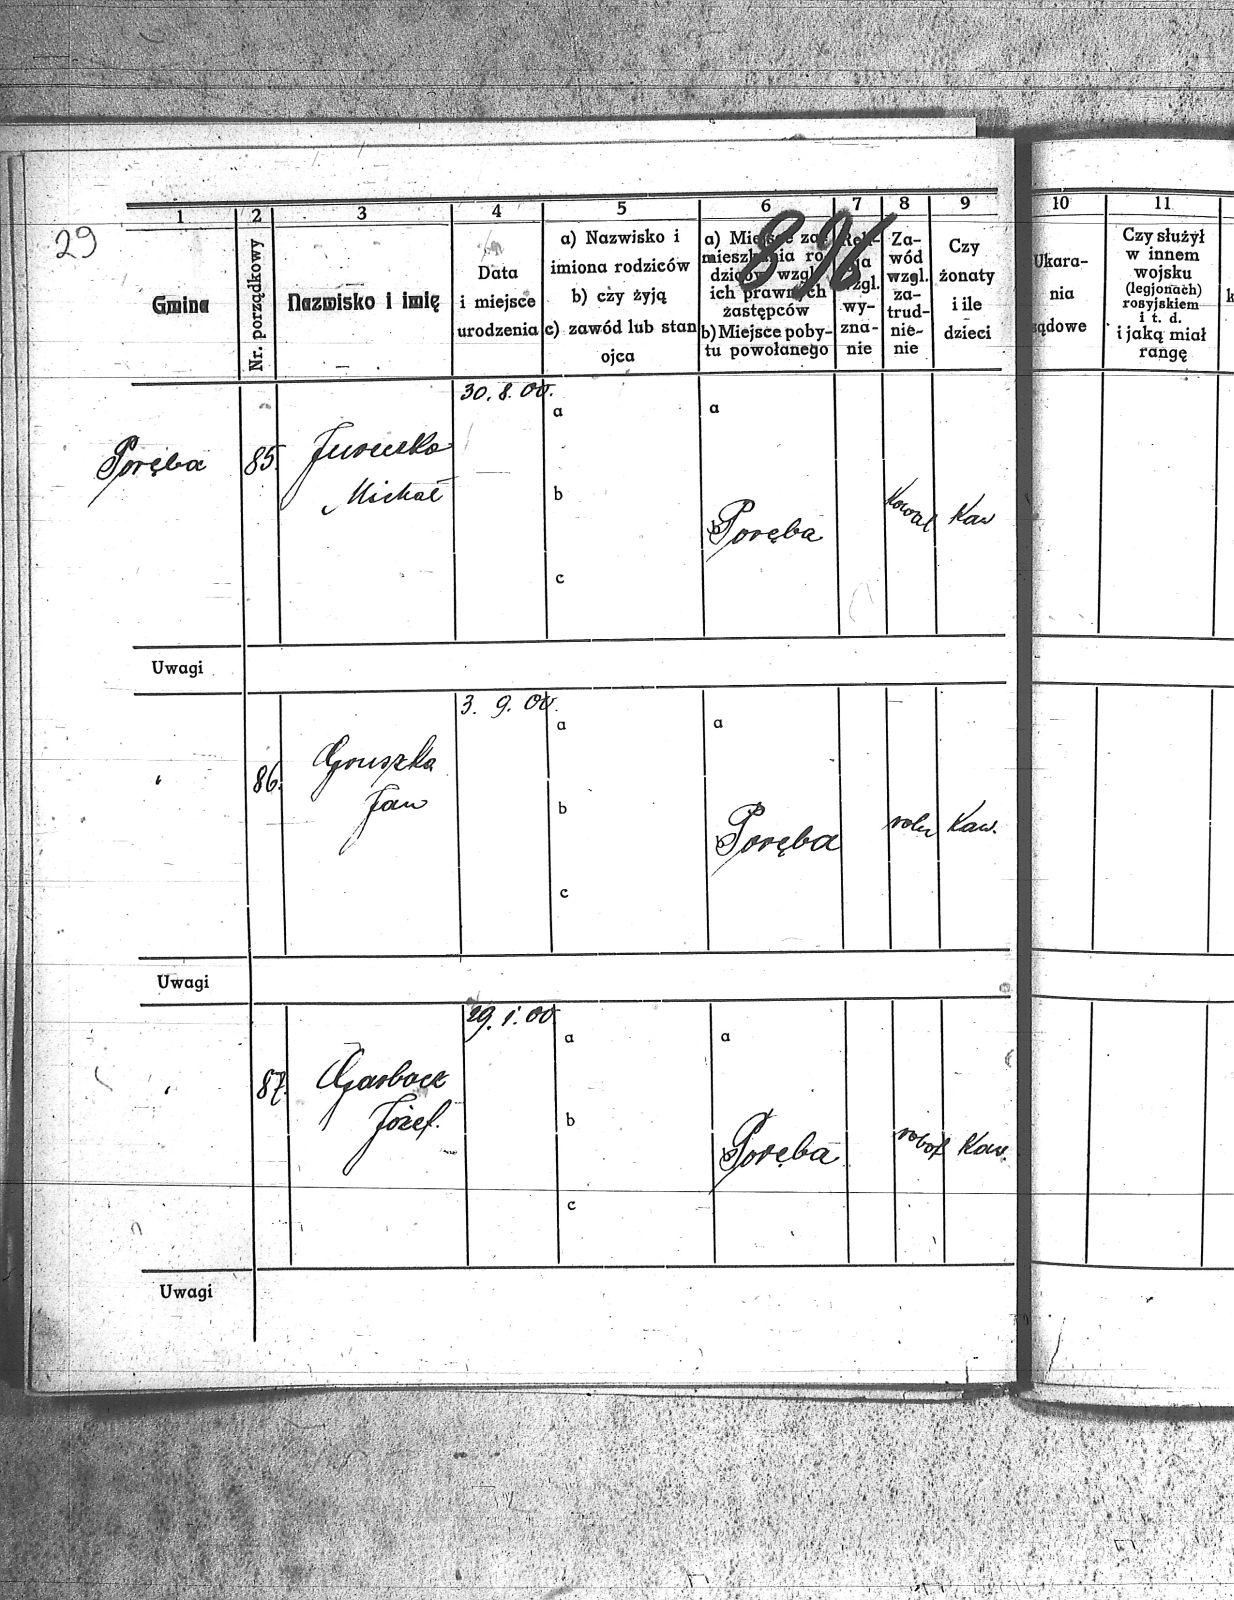 29
1 2 3 4 5 6 7 8 9 10 11
Gmina
Nr. porządkowy
Nazwisko i imię
Data
i miejsce
urodzenia
a) Nazwisko i
imiona rodziców
b) czy żyją
c) zawód lub stan
ojca
a) Miejsce za-
mieszkania ro-
dziców wzgl.
ich prawnych
zastępców
b) Miejsce poby-
tu powołanego
wzgl.
wy-
zna-
nie
Za-
wód
wzgl.
za-
trud-
nie-
nie
Czy
żonaty
i ile
dzieci
Ukara-
nia
sądowe
Czy służył
w innem
wojsku
(legjonach)
rosyjskiem
i t. d.
i jaką miał
rangę
30. 8. 00.
a a
Poręba 85.
Michał
b b Poręba Kowal Kaw
c
Uwagi
3. 9. 00.
a a
" 86. Gruszka
Jan
b b Poręba roln Kaw.
c
Uwagi
29. 1. 00.
a a
" 87. Garbacz
Józef.
b b Poręba robot Kaw.
c
Uwagi